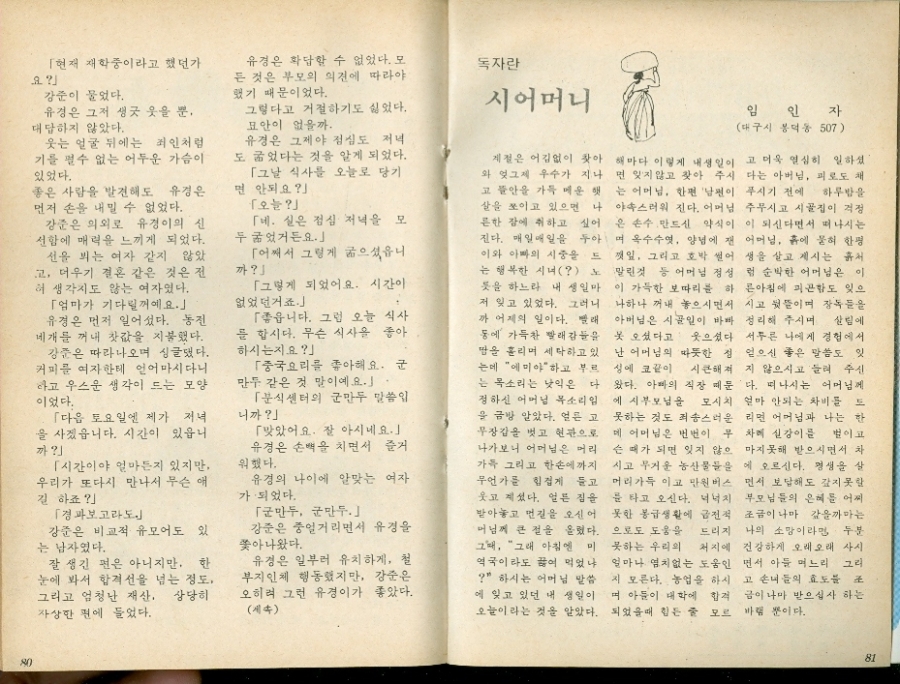 「현재 재학중이라고 했던가
요?」
강준이 물었다.
유경은 그저 생긋 웃을 뿐,
대답하지 않았다.
웃는 얼굴 뒤에는 죄인처럼
기를 펼수 없는 어두운 가슴이
있었다.
좋은 사람을 발견해도 유경은
먼저 손을 내밀 수 없었다.
강준은 의외로 유경이의 신
선함에 매력을 느끼게 되었다.
선을 뵈는 여자 같지 않았
고, 더우기 결혼 같은 것은 전
혀 생각지도 않는 여자였다.
「엄마가 기다릴꺼예요.」
유경은 먼저 일어섰다. 동전
네개를 꺼내 찻값을 지불했다.
강준은 따라나오며 싱글댔다.
커피를 여자한테 얻어마시다니
하고 우스운 생각이 드는 모양
이었다.
「다음 토요일엔 제가 저녁
을 사겠읍니다. 시간이 있읍니
까?」
「시간이야 얼마든지 있지만,
우리가 또다시 만나서 무슨 얘
길 하죠?」
「경과보고라도.」
강준은 비교적 유모어도 있
는 남자였다.
잘 생긴 편은 아니지만, 한
눈에 봐서 합격선을 넘는 정도,
그리고 엄청난 재산, 상당히
자상한 편에 들었다.
80
유경은 확답할 수 없었다. 모
든 것은 부모의 의견에 따라야
했기 때문이었다.
그렇다고 거절하기도 싫었다.
묘안이 없을까.
유경은 그제야 점심도 저녁
도 굶었다는 것을 알게 되었다.
「그날 식사를 오늘로 당기
면 안되요?」
「오늘?」
「네. 실은 점심 저녁을 모
두 굶었거든요.」
「어째서 그렇게 굶으셨읍니
까?」
「그렇게 되었어요. 시간이
없었던거죠.」
「좋읍니다. 그럼 오늘 식사
를 합시다. 무슨 식사를 좋아
하시는지요?」
「중국요리를 좋아해요. 군
만두 같은 것 말이예요.」
「분식센터의 군만두 말씀입
니까?」
「맞았어요. 잘 아시네요.」
유경은 손뼉을 치면서 즐거
워했다.
유경의 나이에 알맞는 여자
가 되었다.
「군만두, 군만두.」
강준은 중얼거리면서 유경을
쫓아나왔다.
유경은 일부러 유치하게, 철
부지인체 행동했지만, 강준은
오히려 그런 유경이가 좋았다.
(계속)
독자란
시어머니
임 인 자
(대구시 봉덕동 507)
계절은 어김없이 찾아
와 엊그제 우수가 지나
고 뜰안을 가득 메운 햇
살을 쪼이고 있으면 나
른한 잠에 취하고 싶어
진다. 매일매일을 두아
이와 아빠의 시중을 드
는 행복한 시녀(?) 노
릇을 하느라 내 생일마
저 잊고 있었다. 그러니
까 어제의 일이다. 빨래
통에 가득찬 빨래감들을
땀을 흘리며 세탁하고있
는데 "에미야"하고 부르
는 목소리는 낯익은 다
정하신 어머님 목소리임
을 금방 알았다. 얼른 고
무장갑을 벗고 현관으로
나가보니 어머님은 머리
가득 그리고 한손에까지
무언가를 힘겹게 들고
웃고 계셨다. 얼른 짐을
받아놓고 먼길을 오신어
머님께 큰 절을 올렸다.
그때, "그래 아침엔 미
역국이라도 끓여 먹었나
?" 하시는 어머님 말씀
에 잊고 있던 내 생일이
오늘이라는 것을 알았다.
해마다 이렇게 내생일이
면 잊지않고 찾아 주시
는 어머님, 한편 남편이
야속스러워 진다. 어머님
은 손수 만드신 약식이
며 옥수수엿, 양념에 잰
깻잎, 그리고 호박 썰어
말린것 등 어머님 정성
이 가득한 보따리를 하
나하나 꺼내 놓으시면서
아버님은 시골일이 바빠
못 오셨다고 웃으셨다
난 어머님의 따뜻한 정
성에 코끝이 시큰해져
왔다. 아빠의 직장 때문
에 시부모님을 모시지
못하는 것도 죄송스러운
데 어머님은 번번이 무
슨 때가 되면 잊지 않으
시고 무거운 농산물들을
머리가득 이고 만원버스
를 타고 오신다. 넉넉지
못한 봉급생활에 금전적
으로도 도움을 드리지
못하는 우리의 처지에
얼마나 염치없는 도움인
지 모른다. 농업을 하시
며 아들이 대학에 합격
되었을때 힘든 줄 모르
고 더욱 열심히 일하셨
다는 아버님, 피로도 채
푸시기 전에 하루밤을
주무시고 시골집이 걱정
이 되신다면서 떠나시는
어머님, 흙에 묻혀 한평
생을 살고 계시는 흙처
럼 순박한 어머님은 이
른아침에 피곤함도 잊으
시고 윗뜰이며 장독들을
정리해 주시며 살림에
서투른 나에게 경험에서
얻으신 좋은 말씀도 잊
지 않으시고 들려 주신
다. 떠나시는 어머님께
얼마 안되는 차비를 드
리면 어머님과 나는 한
차례 실강이를 벌이고
마지못해 받으시면서 차
에 오르신다. 평생을 살
면서 보답해도 갚지못할
부모님들의 은혜를 어찌
조금이나마 갚을까마는
나의 소망이라면, 두분
건강하게 오래오래 사시
면서 아들 며느리 그리
고 손녀들의 효도를 조
금이나마 받으십사 하는
바램 뿐이다.
81